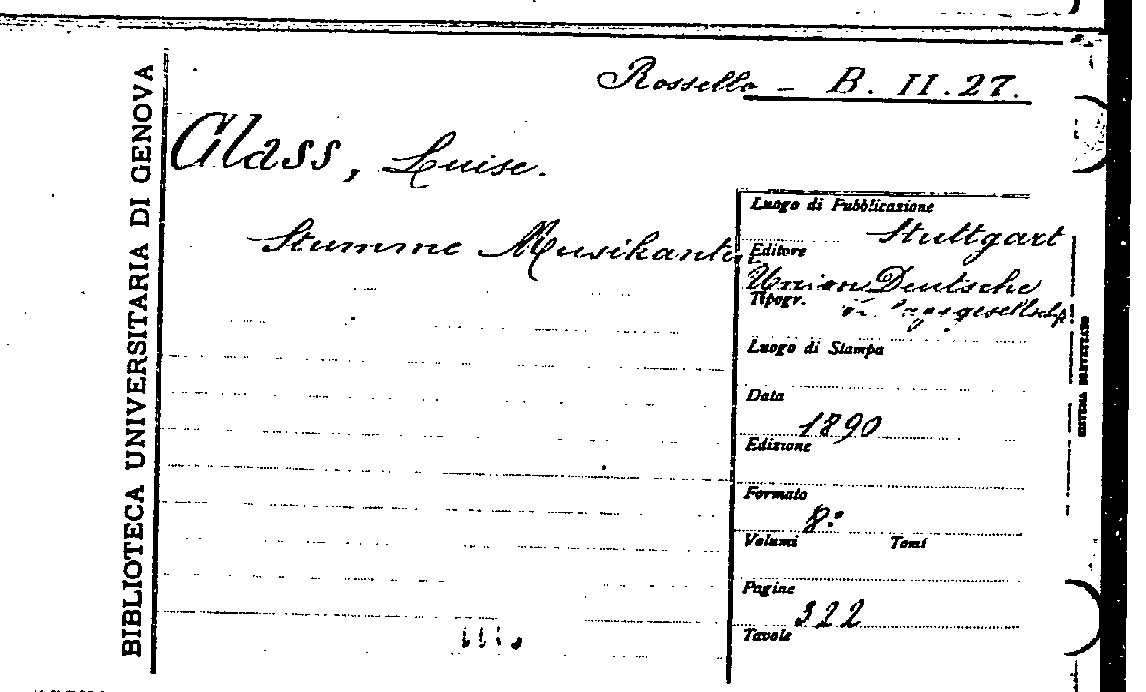 Rossello - B. II. 27.
BIBLIOTECA UNIVERSITARIA DI GENOVA
Glass, Luise.
Stumme Musikanten
Luogo di Pubblicazione
Stuttgart
Editore
Union Deutsche
Tipogr.
Luogo di Stampa
Data
1890
Edizione
Formato
8°
Volumi Tomi
Pagine
322
Tavole